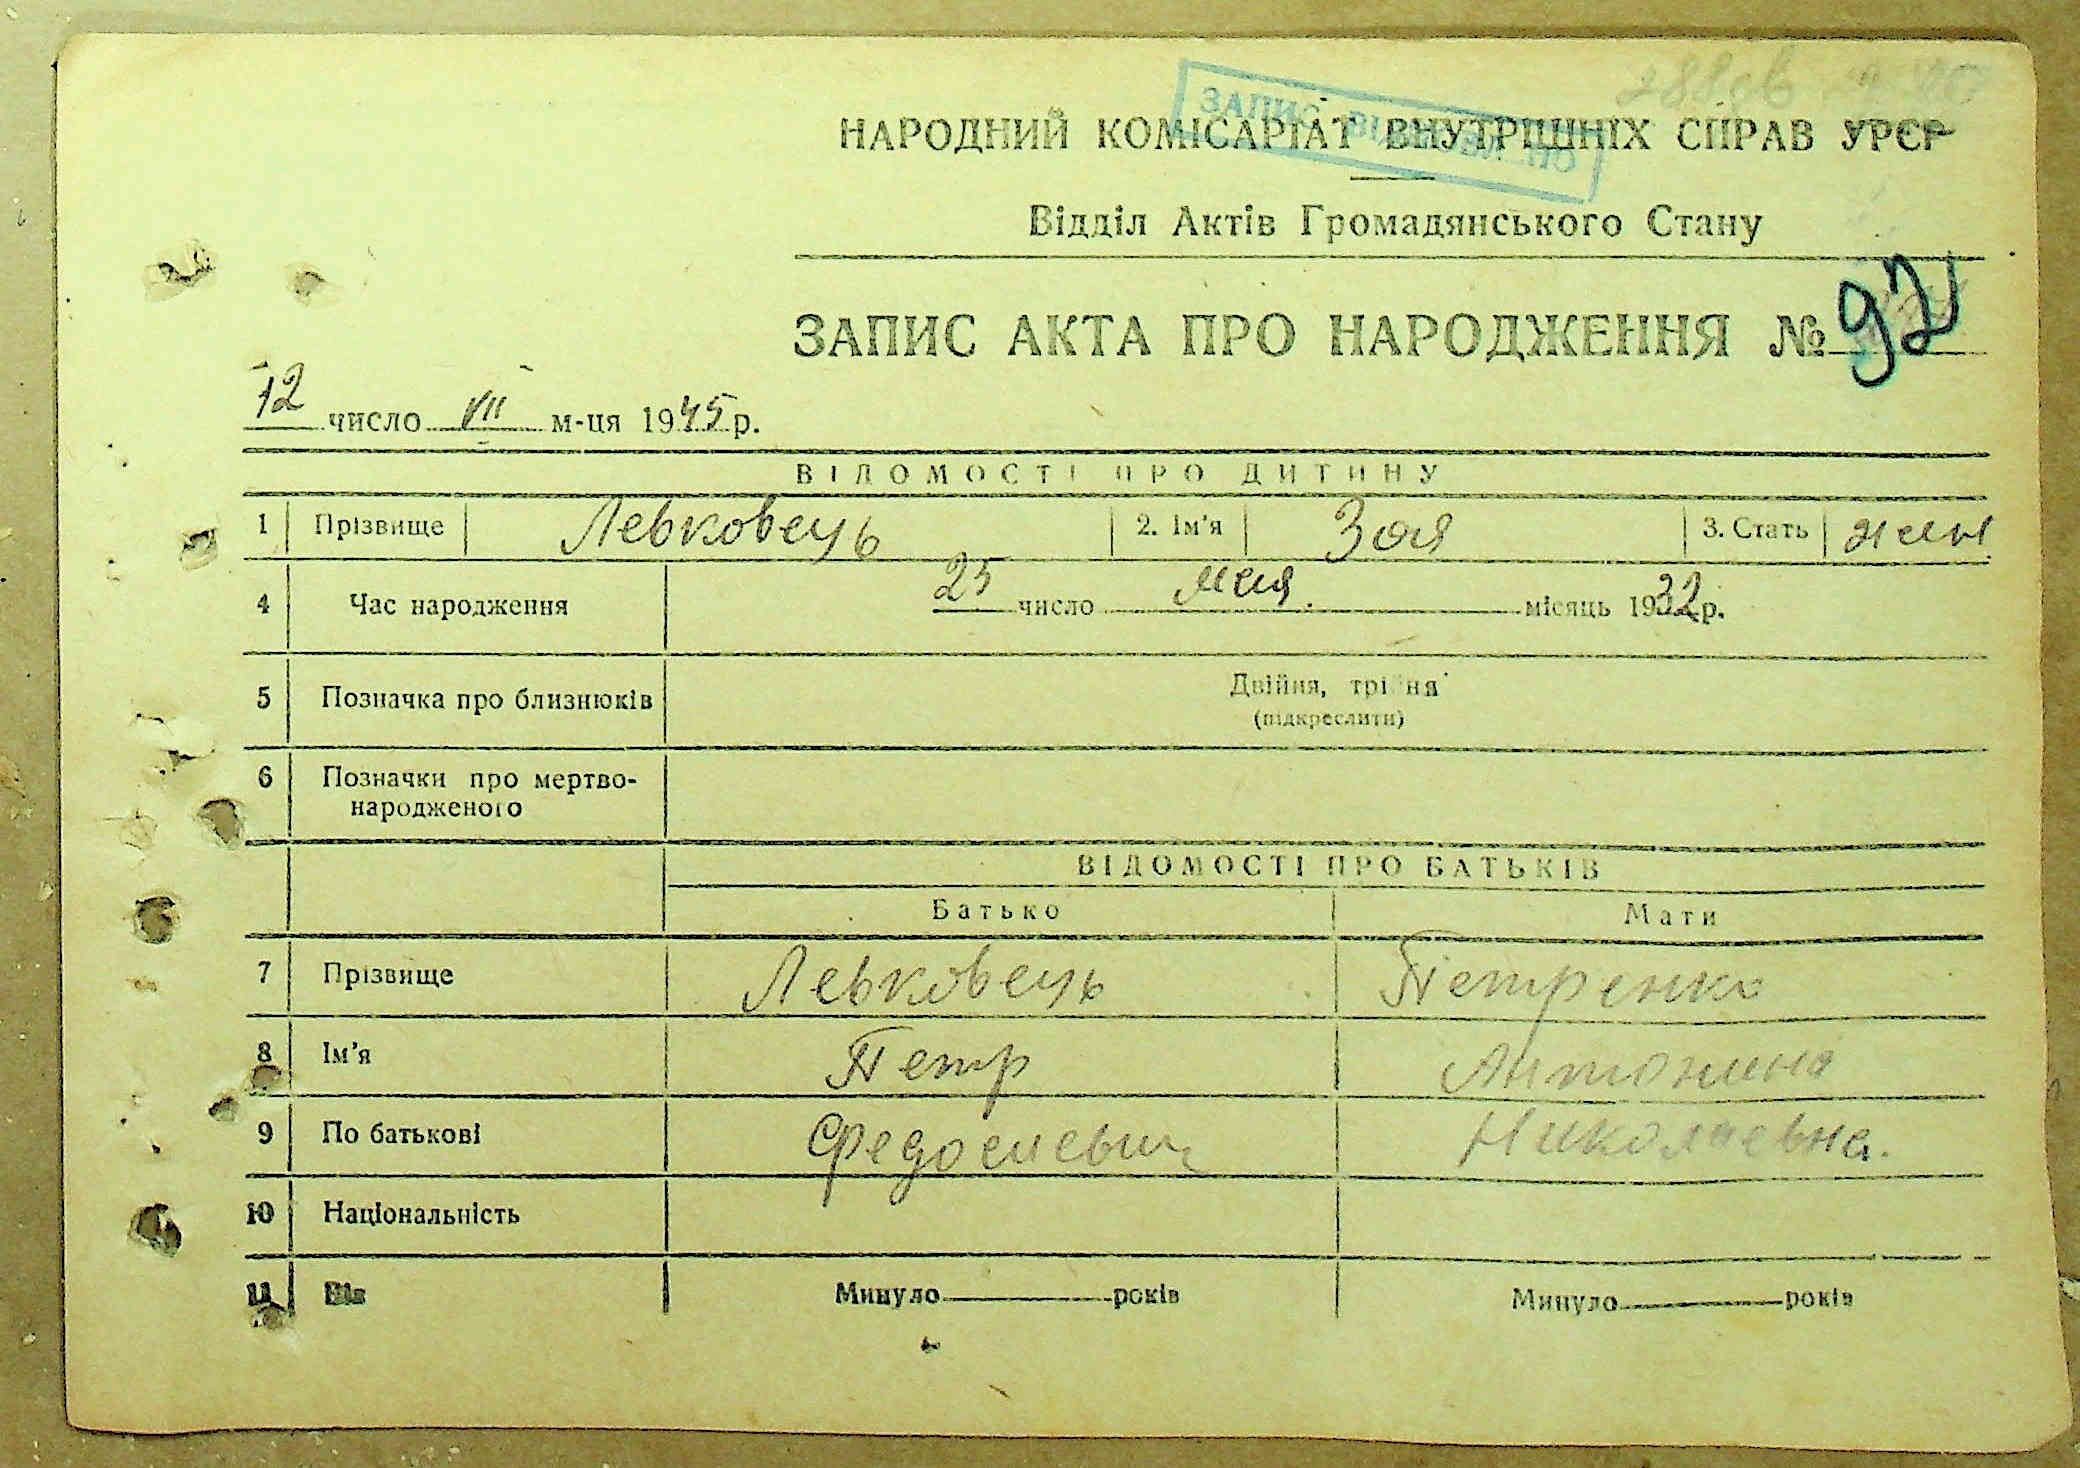 ЗАПИС ВІДНОВЛЕНО
НАРОДНИЙ КОМІСАРІАТ ВНУТРІШНІХ СПРАВ УРСР
Відділ Актів Громадянського Стану
ЗАПИС АКТА ПРО НАРОДЖЕННЯ № 92
12 число VII м-ця 1945 р.
ВІДОМОСТІ ПРО ДИТИНУ
1 Прізвище Левковець 2. Ім'я Зоя 3. Стать жен
4 Час народження 25 число мая місяць 1932 р.
5 Позначка про близнюків Двійня, трійня
(підкреслити)
6 Позначки про мертво-
народженого
ВІДОМОСТІ ПРО БАТЬКІВ
Батько Мати
7 Прізвище Левковець Петренко
8 Ім'я Петр Антонина
9 По батькові Федосиевич Николаевна.
10 Національність
11 Вік Минуло років Минуло років